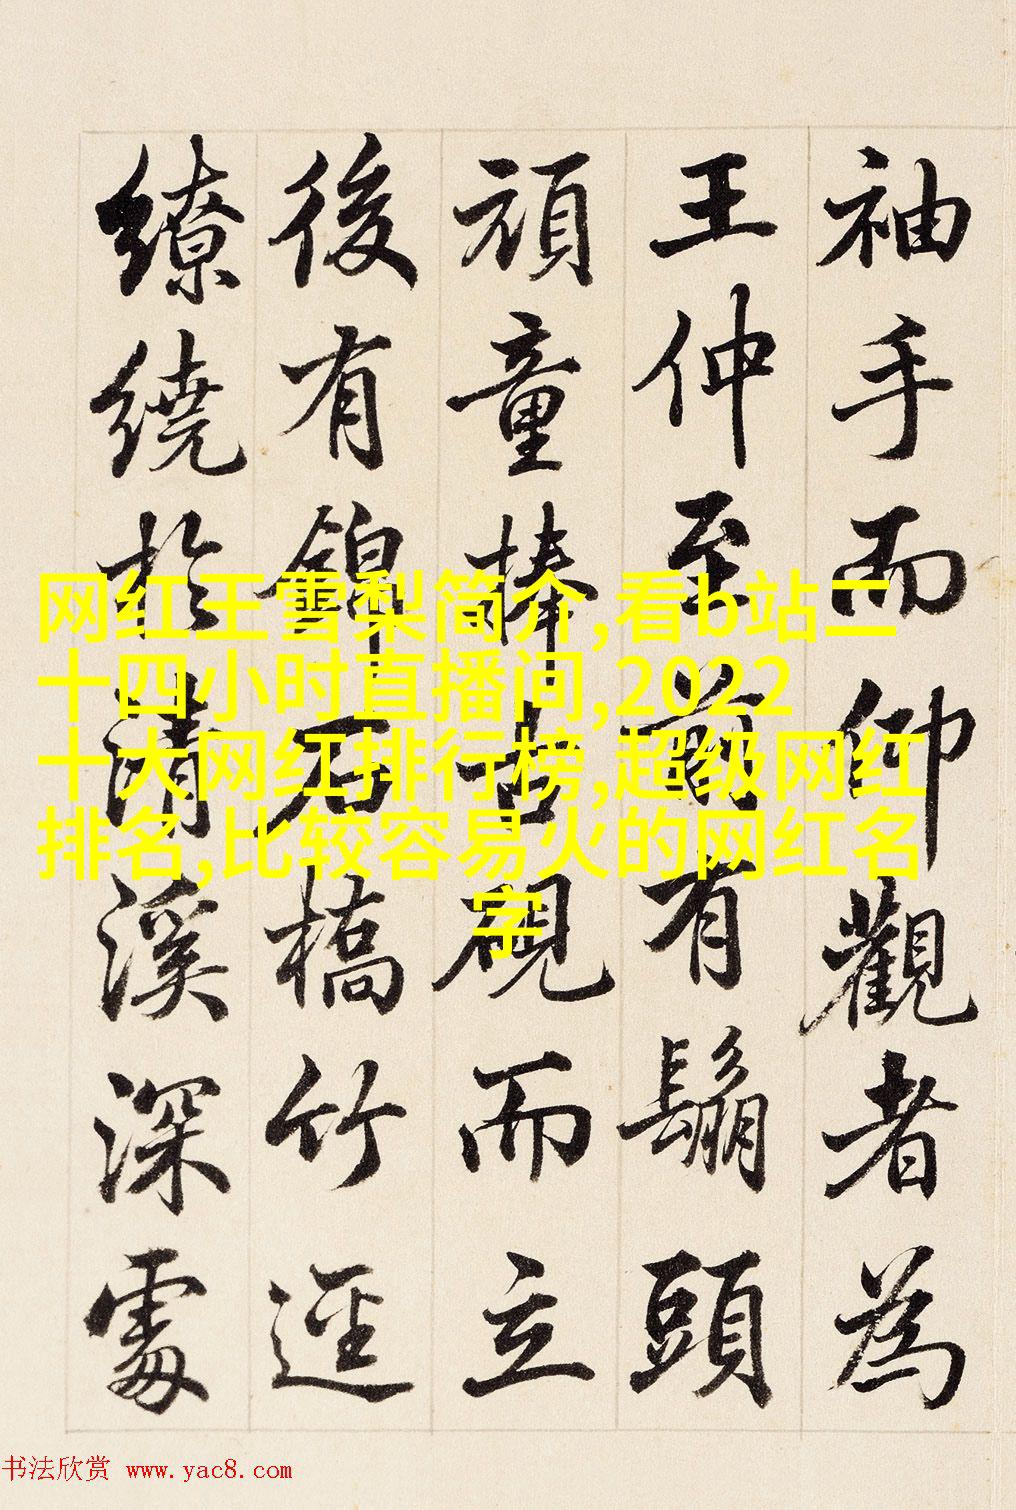 袖手而仰觀者為
王仲至前有鬅頭
頑童捧古硯而立
後有錦石橋竹逕
繚繞於清溪深處
网红王雪梨简介,看b站二
十四小时直播间,2022
十大网红排行榜,超级网红
排名,比较容易火的网红名
字
书法欣赏 www.yac8.com